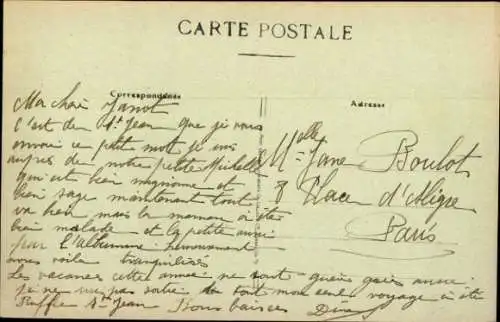 CARTE POSTALE
Correspondance
Adresse
Ma chère Janot
C'est de St Jean que je vous
envoi ce petit mot je suis
auprès de notre petite Michelle
qui est bien mignonne et
bien sage maintenant tout
va bien mais la maman a été
bien malade et la petite aussi
par l'albumine heureusement
nous voila tranquilisés
Les vacances cette année ne sont guère gaies aussi
je ne suis pas sortie le tout mon seul voyage a été
Ruffec St Jean Bons baisers
Mlle Jane Boulot
8 Place d'Aligre
Paris